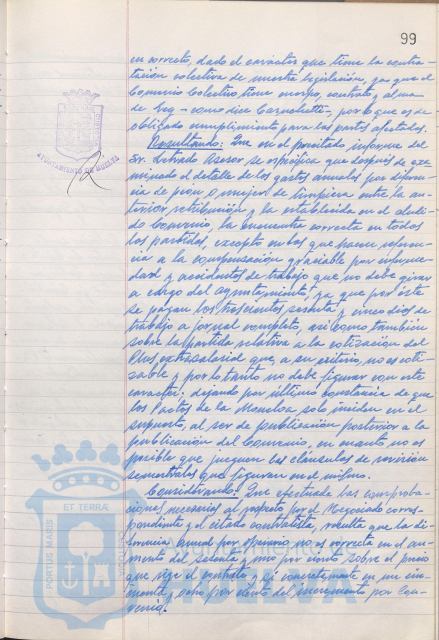 99
en correcto, dado el carácter que tiene la contra-
tación colectiva de nuestra legislación, ya que el
Convenio Colectivo tiene cuerpo, contrato y alma
de Ley - como dice Carnelutti -, por lo que es de
obligado cumplimiento para las partes afectadas.
Resultando: Que en el precitado informe del
Sr. Letrado Asesor se especifica que después de exa-
minado el detalle de los gastos anuales por diferen-
cia de peon o mujer de limpieza entre la an-
terior retribución y la establecida en el aludi-
do Convenio, la encuentra correcta en todas
las partidas, excepto en las que hacen referen-
cia a la compensación graciable por enferme-
dad y accidentes de trabajo que no debe girar
a cargo del ayuntamiento, ya que por éste
se pagan los trescientos sesenta y cinco dias de
trabajo a jornal completo, así como tambien
sobre la partida relativa a la cotización del
Plus extrasalarial que, a su criterio, no es coti-
zable y por lo tanto no debe figurar con este
carácter; dejando por último constancia de que
los Pactos de la Moncloa solo inciden en el
supuesto, al ser de publicación posterior a la
publicación del Convenio, en cuanto no es
posible que jueguen las cláusulas de revisión
semestrales que figuran en el mismo.
Considerando: Que efectuada las comproba-
ciones necesarias al respecto por el Negociado corres-
pondiente y el citado contratista, resulta que la di-
ferencia anual por operario no es correcta en el au-
mento del setenta y uno por ciento sobre el precio
que rige el contrato y si concretamente en un cin-
cuenta y ocho por ciento del incremento por Con-
venio.
AYUNTAMIENTO DE HUELVA
PORTUS MARIS
ET TERRAE
Ayuntamiento de
HUELVA